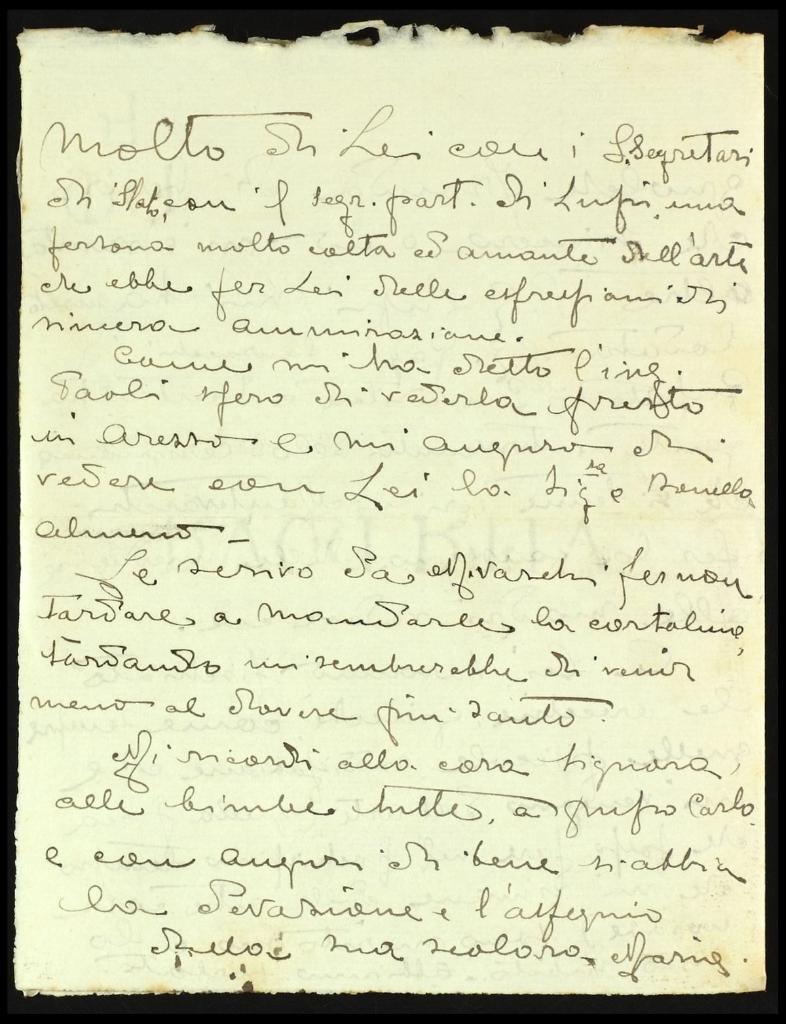 molto di Lei con i S. Segretari
di Stato, con il segr. part. di Lupi, una
persona molto colta ed amante dell'arte
che ebbe per Lei delle espressioni di
sincera ammirazione.
Come mi ha detto l'ing.
Paoli spero di vederla presto
in Arezzo e mi auguro di
vedere con Lei la Sig.ra e Donella
almeno -
Le scrivo da M. Varchi per non
tardare a mandarle la cartolina,
tardando mi sembrerebbe di venir
meno al dovere più santo.
Mi ricordi alla cara signora,
alle bimbe tutte, a Carlo
e con auguri di bene si abbia
la devozione e l'
della sua scolara Maria.